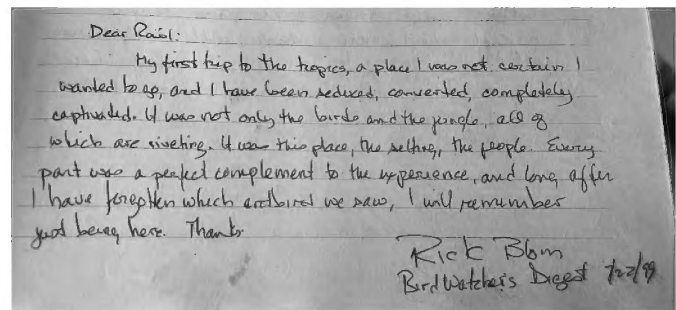 Dear Raúl:
My first trip to the tropics, a place I was not certain I
wanted to go, and I have been seduced, converted, completely
captivated. It was not only the birds and the jungle, all of
which are riveting. It was this place, the setting, the people. Every
part was a perfect complement to the experience, and long after
I have forgotten which antbird we saw, I will remember
just being here. Thanks
Rick Blom
Bird Watcher's Digest